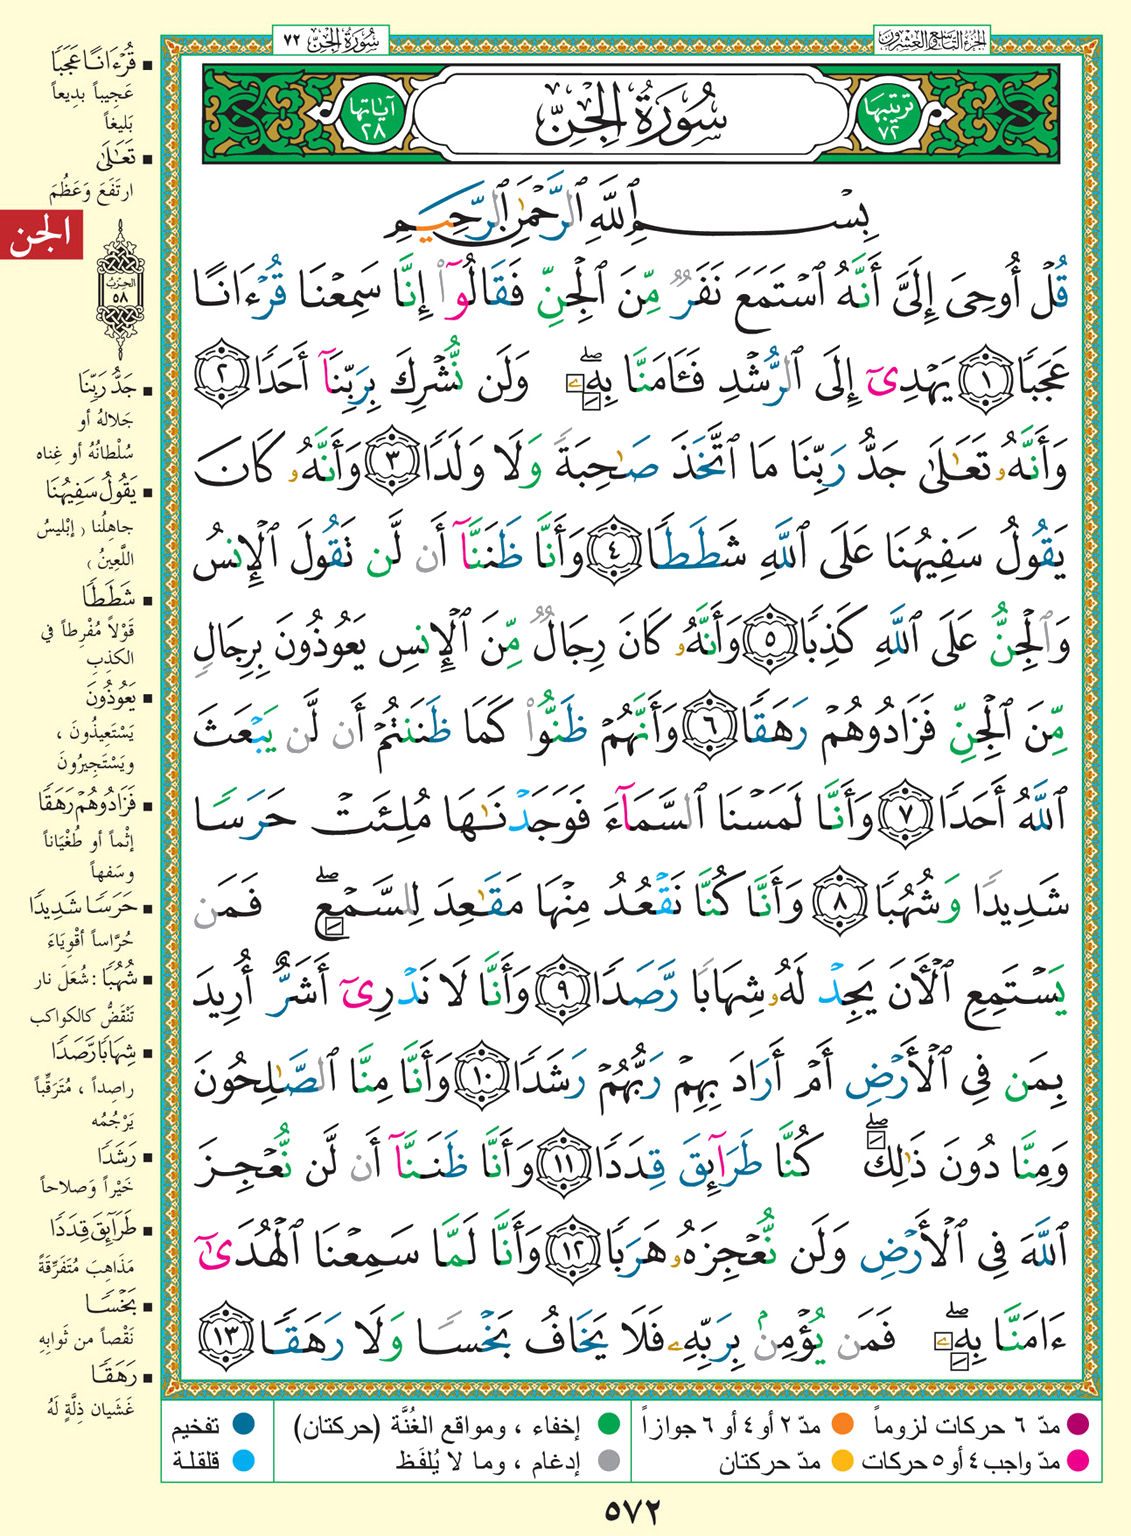 سُورَةُ الجِنّ ٧٢
الجزء التاسع والعشرون
ترتيبها ٧٢
سُورَةُ الْجِنِّ
آياتها ٢٨
بِسْمِ ٱللَّهِ ٱلرَّحْمَٰنِ ٱلرَّحِيمِ
قُلْ أُوحِىَ إِلَىَّ أَنَّهُ ٱسْتَمَعَ نَفَرٌ مِّنَ ٱلْجِنِّ فَقَالُوٓا۟ إِنَّا سَمِعْنَا قُرْءَانًا
عَجَبًا ١ يَهْدِىٓ إِلَى ٱلرُّشْدِ فَـَٔامَنَّا بِهِۦ ۖ وَلَن نُّشْرِكَ بِرَبِّنَآ أَحَدًا ٢
وَأَنَّهُۥ تَعَٰلَىٰ جَدُّ رَبِّنَا مَا ٱتَّخَذَ صَٰحِبَةً وَلَا وَلَدًا ٣ وَأَنَّهُۥ كَانَ
يَقُولُ سَفِيهُنَا عَلَى ٱللَّهِ شَطَطًا ٤ وَأَنَّا ظَنَنَّآ أَن لَّن تَقُولَ ٱلْإِنسُ
وَٱلْجِنُّ عَلَى ٱللَّهِ كَذِبًا ٥ وَأَنَّهُۥ كَانَ رِجَالٌ مِّنَ ٱلْإِنسِ يَعُوذُونَ بِرِجَالٍ
مِّنَ ٱلْجِنِّ فَزَادُوهُمْ رَهَقًا ٦ وَأَنَّهُمْ ظَنُّوا۟ كَمَا ظَنَنتُمْ أَن لَّن يَبْعَثَ
ٱللَّهُ أَحَدًا ٧ وَأَنَّا لَمَسْنَا ٱلسَّمَآءَ فَوَجَدْنَٰهَا مُلِئَتْ حَرَسًا
شَدِيدًا وَشُهُبًا ٨ وَأَنَّا كُنَّا نَقْعُدُ مِنْهَا مَقَٰعِدَ لِلسَّمْعِ ۖ فَمَن
يَسْتَمِعِ ٱلْـَٔانَ يَجِدْ لَهُۥ شِهَابًا رَّصَدًا ٩ وَأَنَّا لَا نَدْرِىٓ أَشَرٌّ أُرِيدَ
بِمَن فِى ٱلْأَرْضِ أَمْ أَرَادَ بِهِمْ رَبُّهُمْ رَشَدًا ١٠ وَأَنَّا مِنَّا ٱلصَّٰلِحُونَ
وَمِنَّا دُونَ ذَٰلِكَ ۖ كُنَّا طَرَآئِقَ قِدَدًا ١١ وَأَنَّا ظَنَنَّآ أَن لَّن نُّعْجِزَ
ٱللَّهَ فِى ٱلْأَرْضِ وَلَن نُّعْجِزَهُۥ هَرَبًا ١٢ وَأَنَّا لَمَّا سَمِعْنَا ٱلْهُدَىٰٓ
ءَامَنَّا بِهِۦ ۖ فَمَن يُؤْمِنۢ بِرَبِّهِۦ فَلَا يَخَافُ بَخْسًا وَلَا رَهَقًا ١٣
■ قُرْءَانًا عَجَبًا
عَجِيباً بدِيعاً
بَليغاً
■ تَعَٰلَىٰ
ارتَفَعَ وَعَظُمَ
الجن
الحزب
٥٨
■ جَدُّ رَبِّنَا
جَلالهُ أو
سُلْطانُهُ أو غِناه
■ يَقُولُ سَفِيهُنَا
جاهِلُنا ( إبْليسُ
اللَّعِينُ )
■ شَطَطًا
قَوْلاً مُفْرِطاً في
الكذِبِ
■ يَعُوذُونَ
يَسْتَعِيذُونَ ،
ويَسْتَجِيرُونَ
■ فَزَادُوهُمْ رَهَقًا
إثْماً أو طُغْيَاناً
وسَفهاً
■ حَرَسًا شَدِيدًا
حُرَّاساً أقْوِيَاءَ
■ شُهُبًا : شُعَلَ نار
تَنْقَضُّ كالكواكب
■ شِهَابًا رَّصَدًا
راصِداً ، مُتَرَقِّباً
يَرْجُمُه
■ رَشَدًا
خَيْراً وَصلاحاً
■ طَرَآئِقَ قِدَدًا
مَذاهِبَ مُتَفَرِّقَةً
■ بَخْسًا
نَقْصاً من ثَوابِهِ
■ رَهَقًا
غَشَيان ذِلَّةٍ لَهُ
مدّ ٦ حركات لزوماً
مدّ ٢ أو ٤ أو ٦ جوازاً
إخفاء ، ومواقع الغُنَّة (حركتان)
تفخيم
مدّ واجب ٤ أو ٥ حركات
مدّ حركتان
إدغام ، وما لا يُلفَظ
قلقلة
٥٧٢